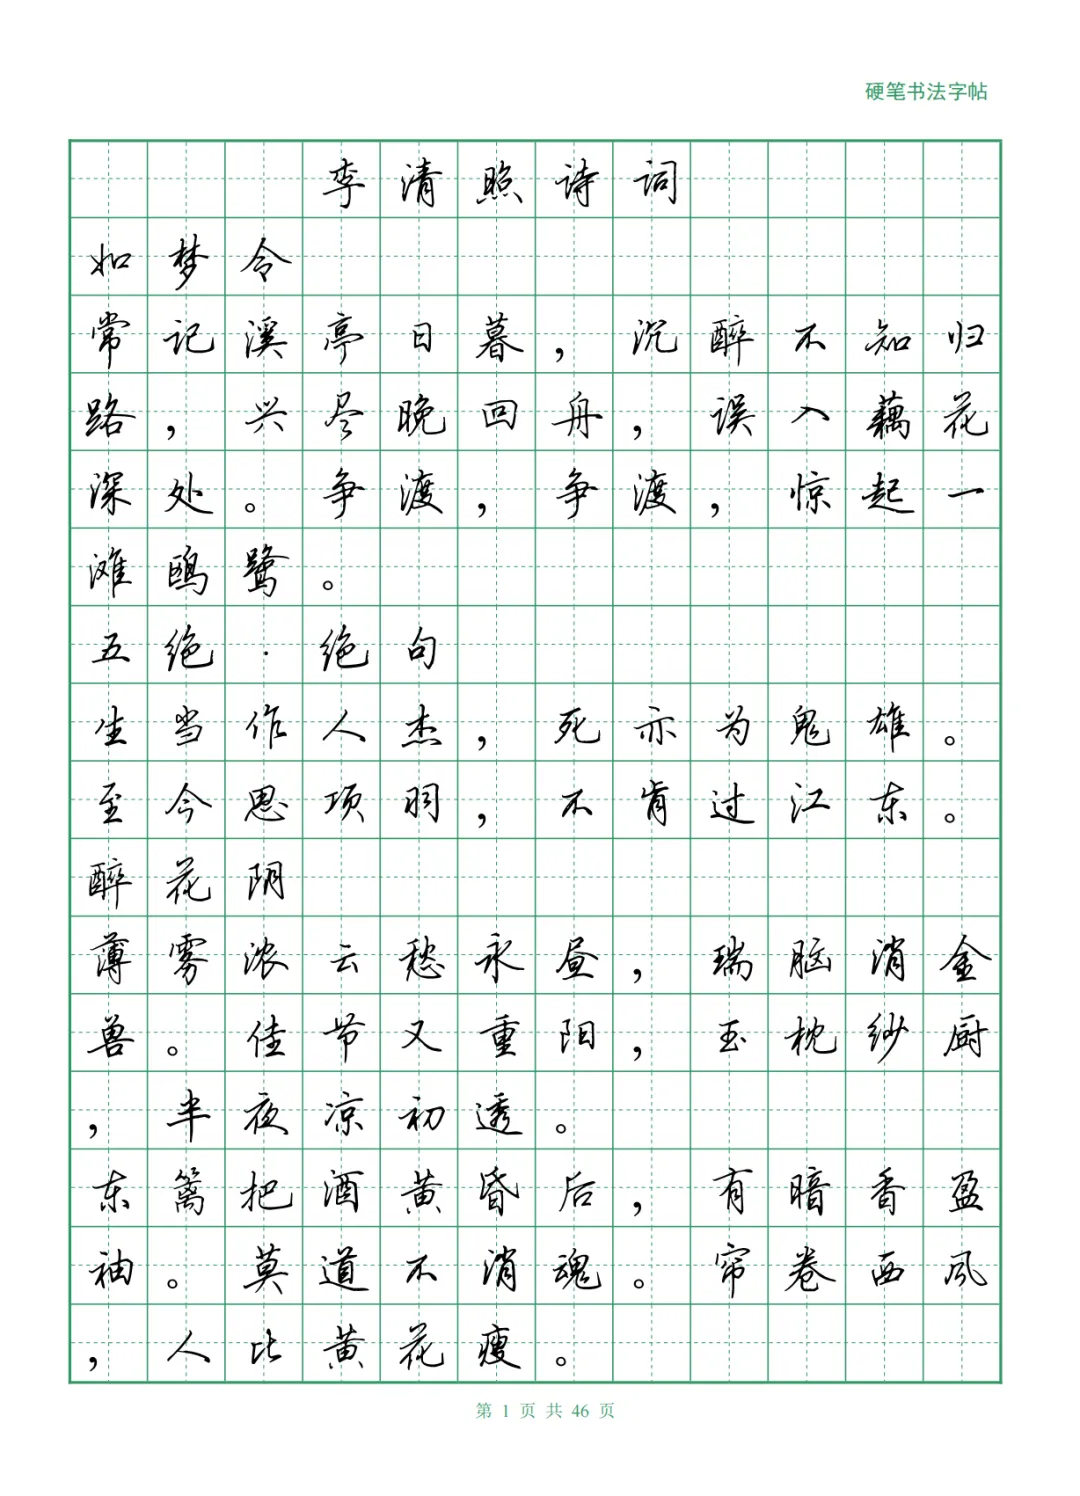 硬笔书法字帖
李清照诗词
如梦令
常记溪亭日暮，沉醉不知归
路，兴尽晚回舟，误入藕花
深处。争渡，争渡，惊起一
滩鸥鹭。
五绝·绝句
生当作人杰，死亦为鬼雄。
至今思项羽，不肯过江东。
醉花阴
薄雾浓云愁永昼，瑞脑消金
兽。佳节又重阳，玉枕纱厨
，半夜凉初透。
东篱把酒黄昏后，有暗香盈
袖。莫道不消魂。帘卷西风
，人比黄花瘦。
第 1 页 共 46 页